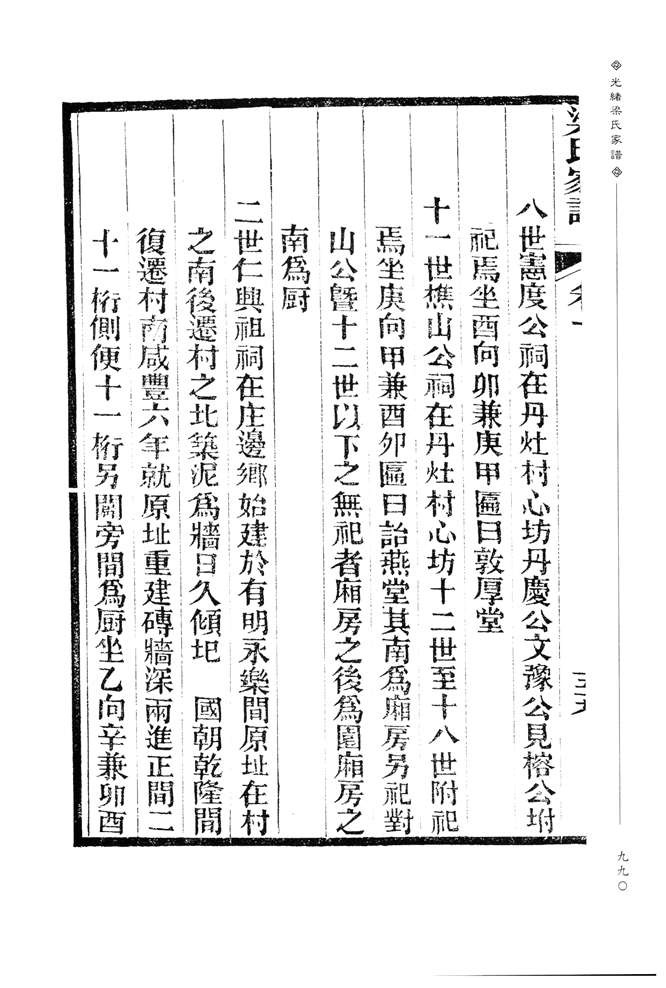 光緒梁氏家譜
梁氏家譜 卷一
八世憲度公祠在丹灶村心坊丹慶公文豫公見榕公坿
祀焉坐酉向卯兼庚甲匾曰敦厚堂
十一世樵山公祠在丹灶村心坊十二世至十八世附祀
焉坐庚向甲兼酉卯匾曰詒燕堂其南爲廂房另祀對
山公曁十二世以下之無祀者廂房之後爲園廂房之
南爲厨
二世仁興祖祠在庄邊鄉始建於有明永樂間原址在村
之南後遷村之北築泥爲牆日久傾圯 國朝乾隆間
復遷村南咸豐六年就原址重建磚牆深兩進正間二
十一桁側便十一桁另闢旁間爲厨坐乙向辛兼卯酉
九九〇